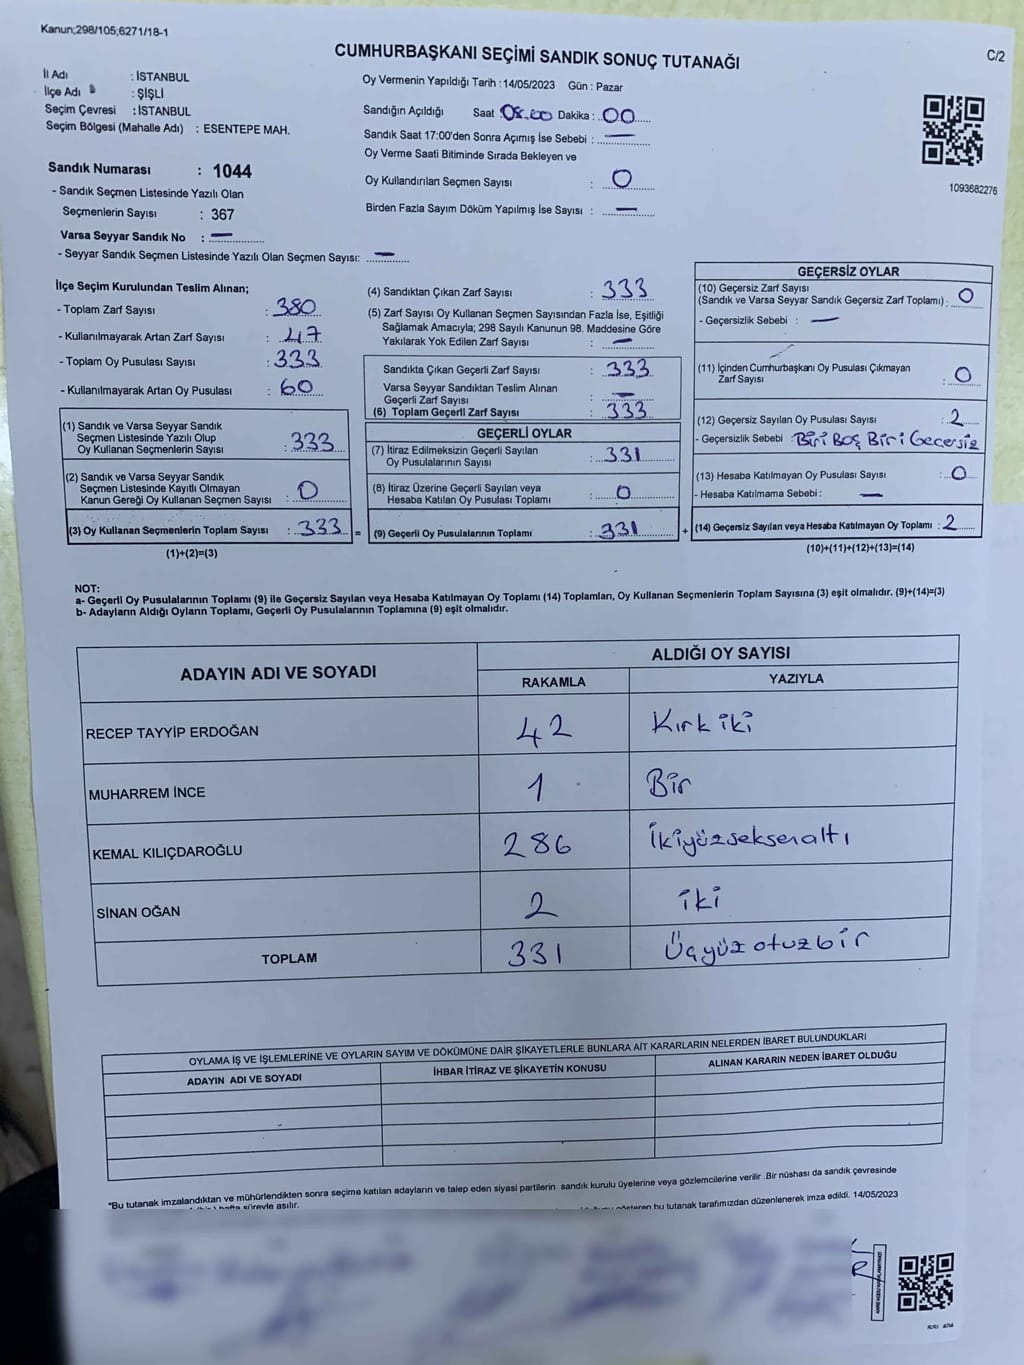 Kanun;298/105;6271/18-1
CUMHURBAŞKANI SEÇİMİ SANDIK SONUÇ TUTANAĞI
C/2
İl Adı : İSTANBUL
İlçe Adı : ŞİŞLİ
Seçim Çevresi : İSTANBUL
Seçim Bölgesi (Mahalle Adı) : ESENTEPE MAH.
Sandık Numarası : 1044
- Sandık Seçmen Listesinde Yazılı Olan
Seçmenlerin Sayısı : 367
Varsa Seyyar Sandık No : —
- Seyyar Sandık Seçmen Listesinde Yazılı Olan Seçmen Sayısı: —
Oy Vermenin Yapıldığı Tarih : 14/05/2023 Gün : Pazar
Sandığın Açıldığı Saat : 08.00 Dakika : 00
Sandık Saat 17:00'den Sonra Açımış İse Sebebi : —
Oy Verme Saati Bitiminde Sırada Bekleyen ve
Oy Kullandırılan Seçmen Sayısı : 0
Birden Fazla Sayım Döküm Yapılmış İse Sayısı : —
1093682276
İlçe Seçim Kurulundan Teslim Alınan;
- Toplam Zarf Sayısı : 380
- Kullanılmayarak Artan Zarf Sayısı : 47
- Toplam Oy Pusulası Sayısı : 333
- Kullanılmayarak Artan Oy Pusulası : 60
(1) Sandık ve Varsa Seyyar Sandık
Seçmen Listesinde Yazılı Olup
Oy Kullanan Seçmenlerin Sayısı : 333
(2) Sandık ve Varsa Seyyar Sandık
Seçmen Listesinde Kayıtlı Olmayan
Kanun Gereği Oy Kullanan Seçmen Sayısı : 0
(3) Oy Kullanan Seçmenlerin Toplam Sayısı : 333 =
(1)+(2)=(3)
(4) Sandıktan Çıkan Zarf Sayısı : 333
(5) Zarf Sayısı Oy Kullanan Seçmen Sayısından Fazla İse, Eşitliği
Sağlamak Amacıyla; 298 Sayılı Kanunun 98. Maddesine Göre
Yakılarak Yok Edilen Zarf Sayısı : —
Sandıkta Çıkan Geçerli Zarf Sayısı : 333
Varsa Seyyar Sandıktan Teslim Alınan
Geçerli Zarf Sayısı : —
(6) Toplam Geçerli Zarf Sayısı : 333
GEÇERLİ OYLAR
(7) İtiraz Edilmeksizin Geçerli Sayılan
Oy Pusulalarının Sayısı : 331
(8) İtiraz Üzerine Geçerli Sayılan veya
Hesaba Katılan Oy Pusulası Toplamı : 0
(9) Geçerli Oy Pusulalarının Toplamı : 331 +
GEÇERSİZ OYLAR
(10) Geçersiz Zarf Sayısı
(Sandık ve Varsa Seyyar Sandık Geçersiz Zarf Toplamı) : 0
- Geçersizlik Sebebi : —
(11) İçinden Cumhurbaşkanı Oy Pusulası Çıkmayan
Zarf Sayısı : 0
(12) Geçersiz Sayılan Oy Pusulası Sayısı : 2
- Geçersizlik Sebebi : Biri Boş Biri Gecersiz
(13) Hesaba Katılmayan Oy Pusulası Sayısı : 0
- Hesaba Katılmama Sebebi : —
(14) Geçersiz Sayılan veya Hesaba Katılmayan Oy Toplamı : 2
(10)+(11)+(12)+(13)=(14)
NOT:
a- Geçerli Oy Pusulalarının Toplamı (9) ile Geçersiz Sayılan veya Hesaba Katılmayan Oy Toplamı (14) Toplamları, Oy Kullanan Seçmenlerin Toplam Sayısına (3) eşit olmalıdır. (9)+(14)=(3)
b- Adayların Aldığı Oyların Toplamı, Geçerli Oy Pusulalarının Toplamına (9) eşit olmalıdır.
ADAYIN ADI VE SOYADI
ALDIĞI OY SAYISI
RAKAMLA YAZIYLA
RECEP TAYYİP ERDOĞAN 42 Kırk iki
MUHARREM İNCE 1 Bir
KEMAL KILIÇDAROĞLU 286 İkiyüzseksenaltı
SİNAN OĞAN 2 iki
TOPLAM 331 Üçyüz otuzbir
OYLAMA İŞ VE İŞLEMLERİNE VE OYLARIN SAYIM VE DÖKÜMÜNE DAİR ŞİKAYETLERLE BUNLARA AİT KARARLARIN NELERDEN İBARET BULUNDUKLARI
ADAYIN ADI VE SOYADI İHBAR İTİRAZ VE ŞİKAYETİN KONUSU ALINAN KARARIN NEDEN İBARET OLDUĞU
*Bu tutanak imzalandıktan ve mühürlendikten sonra seçime katılan adayların ve talep eden siyasi partilerin sandık kurulu üyelerine veya gözlemcilerine verilir .Bir nüshası da sandık çevresinde
hafta süreyle asılır.
gösteren bu tutanak tarafımızdan düzenlenerek imza edildi. 14/05/2023